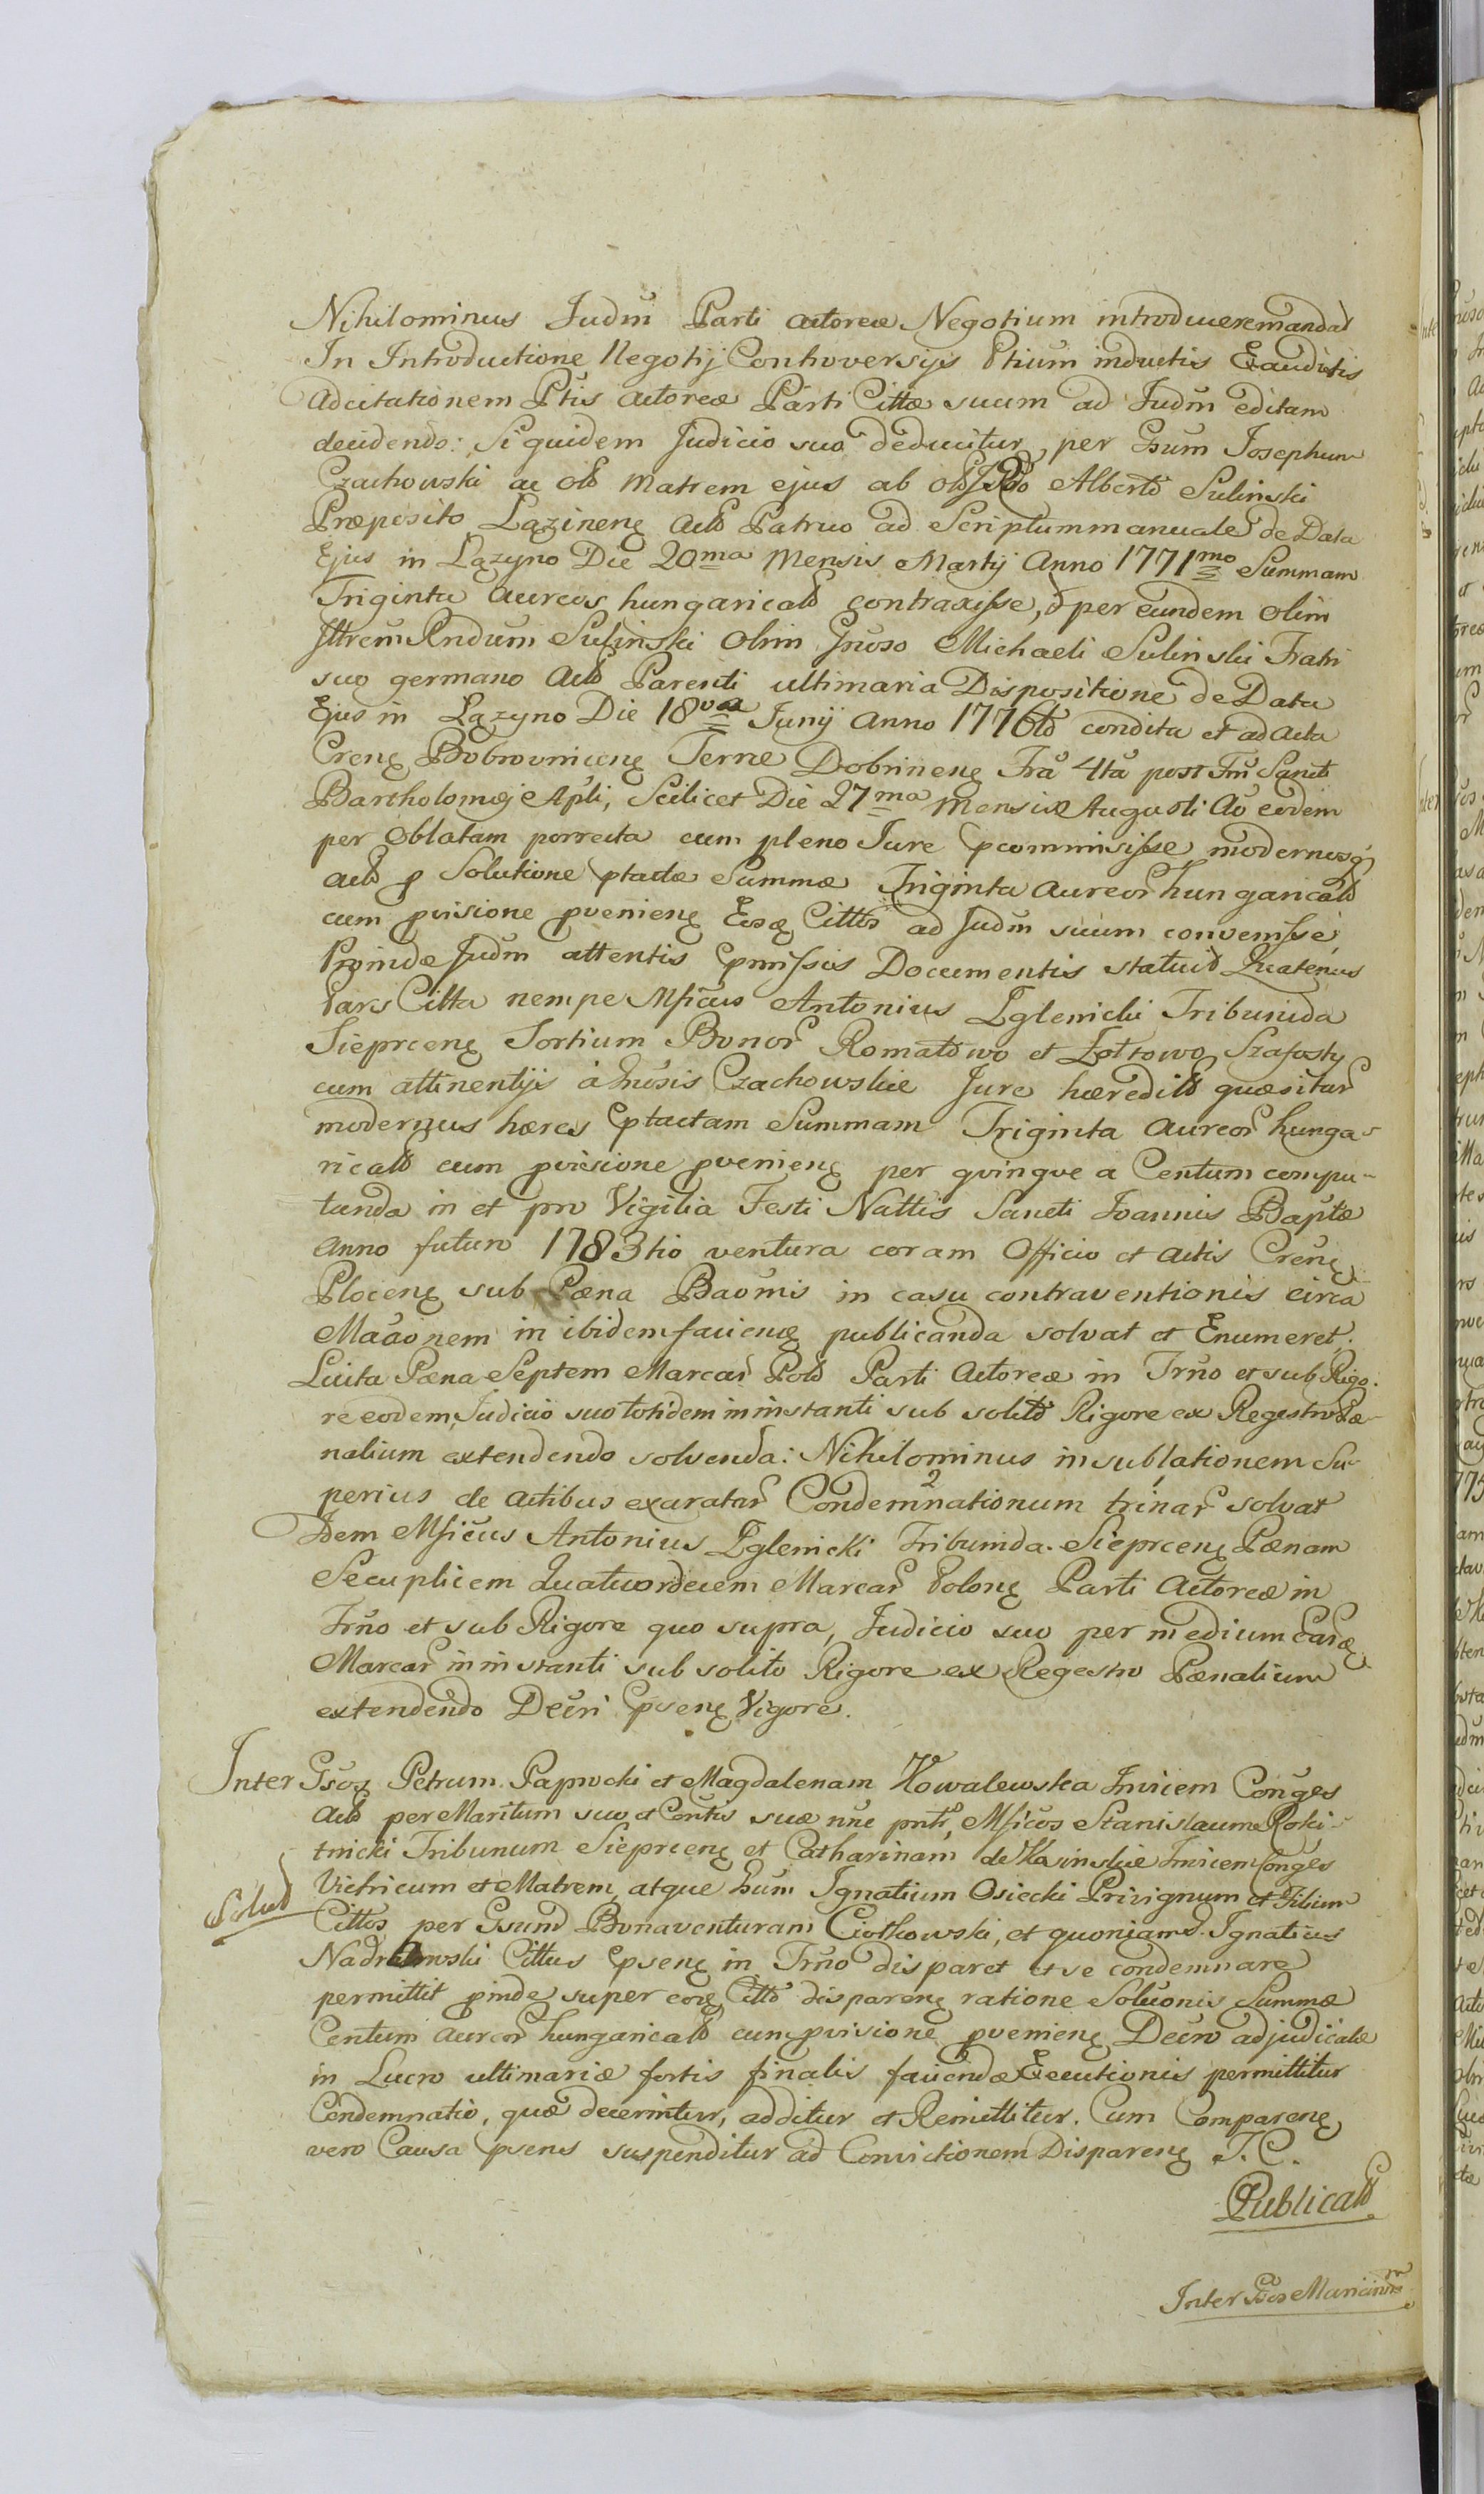 Nihilominus Judm̄ Parti actoreæ Negotium introducere mandat
In Introductione Negotij Controversijs Ptium inductis Exauditis
Adcitationem Ptis actoreæ Parti Cittæ suum ad Judm̄ editam
decidendo: Siquidem Judicio suo deducitur, per Gsum Josephum
Czachowski ac olb matrem ejus ab olb Alberto Sulinski
Præposito Lązineng actb Patruo ad Scriptum manuale de Data
Ejus in Lązyno Die 20ma Mensis Martij Anno 1771mo Summam
Triginta Aureos hungaricalb contraxisse, & per eundem olim
Illrem Rndum Sulinski olim Gnoso Michaeli Sulinski Fratri
suo germano actb Parenti ultimaria Dispositione de Data
Ejus in Lązyno Die 18va Junij Anno 1776tb condita et ad Acta
Creng Bobrovniceng Terræ Dobrineng Fra 4ta post Fm Sancti
Bartholomæj Apli, Scilicet Die 27ma Mensis Augusti Ao eodem
per Oblatam porrecta cum pleno Jure pcommisisse modernosq
actb p Solutione ptactæ Summæ Triginta aureor hungaricalb
cum pvisione pvenieng Eosq Cittos ad Judm suum convenisse,
Proinde Judm attentis pmissis Documentis statuit Quatenus
Pars Citta nempe Mficus Antonius Zglenicki Tribunida
Sieprceng Sortium Bonor Romatowo et Zottowo Szafosty
cum attinentijs à Gnosis Czachowskie Jure hæreditb quæsitar
modernus hæres ptactam Summam Triginta Aureor hunga-
ricalb cum pvisione pvenieng per quinque a Centum compu-
tanda in et pro Vigilia Festi Nattis Sancti Joannis Baptæ
Anno futuro 1783tio ventura coram Officio et Actis Creng
Ploceng sub Pœna Baomis in casu contraventionis circa
Maãonem in ibidem facieng publicanda solvat et Enumeret.
Luita Pœna Septem Marcar Polb Parti Actoreæ in Trno et sub Rigo-
re eodem, Judicio suo totidem in instanti sub solito Rigore ex Regestro Pæ-
nalium extendendo solvenda: Nihilominus in sublationem Su-
perius de Actibus exaratar Condemnationum trinar solvat
Idem Mficus Antonius Zglenicki Tribunida Sieprceng Pœnam
Secuplicem Quatuordecem Marcar Polong Parti Actoreæ in
Trno et sub Rigore quo supra, Judicio suo per medium earq
Marcar in instanti sub solito Rigore ex Regestro Pœnalium
extendendo Decri pseng Vigore.
Inter Gsos Petrum Papwcki et Magdalenam Kowalewska Invicem Conges
Actb per Maritum suo et Contis suæ nne pntr, Mficos Stanislaum Roki-
tnicki Tribunum Sieprceng et Catharinam de Karnskie Invicem Conges
Vitricum et Matrem, atque Gsum Ignatium Osiecki Privignum et Filium
Solut
Cittos per Gsum Bonaventuram Ciotkowski, et quoniam Ignatius
Nadrowski Cittus pseng in Trno disparet et se condemnare
permittit pinde super eoq Cittb dispareng ratione Soluonis Summæ
Centum Aureor hungaricalb cum pvisione pvenieng Decro adjudicatæ
in Lucro ultimariæ fortis finalis faciendæ Executionis permittitur
Condemnatio, quæ decernitur, additur et Remittitur. Cum Compareng
vero Causa psens suspenditur ad Convictionem Dispareng J. C.
Publicatb
Inter Gsos